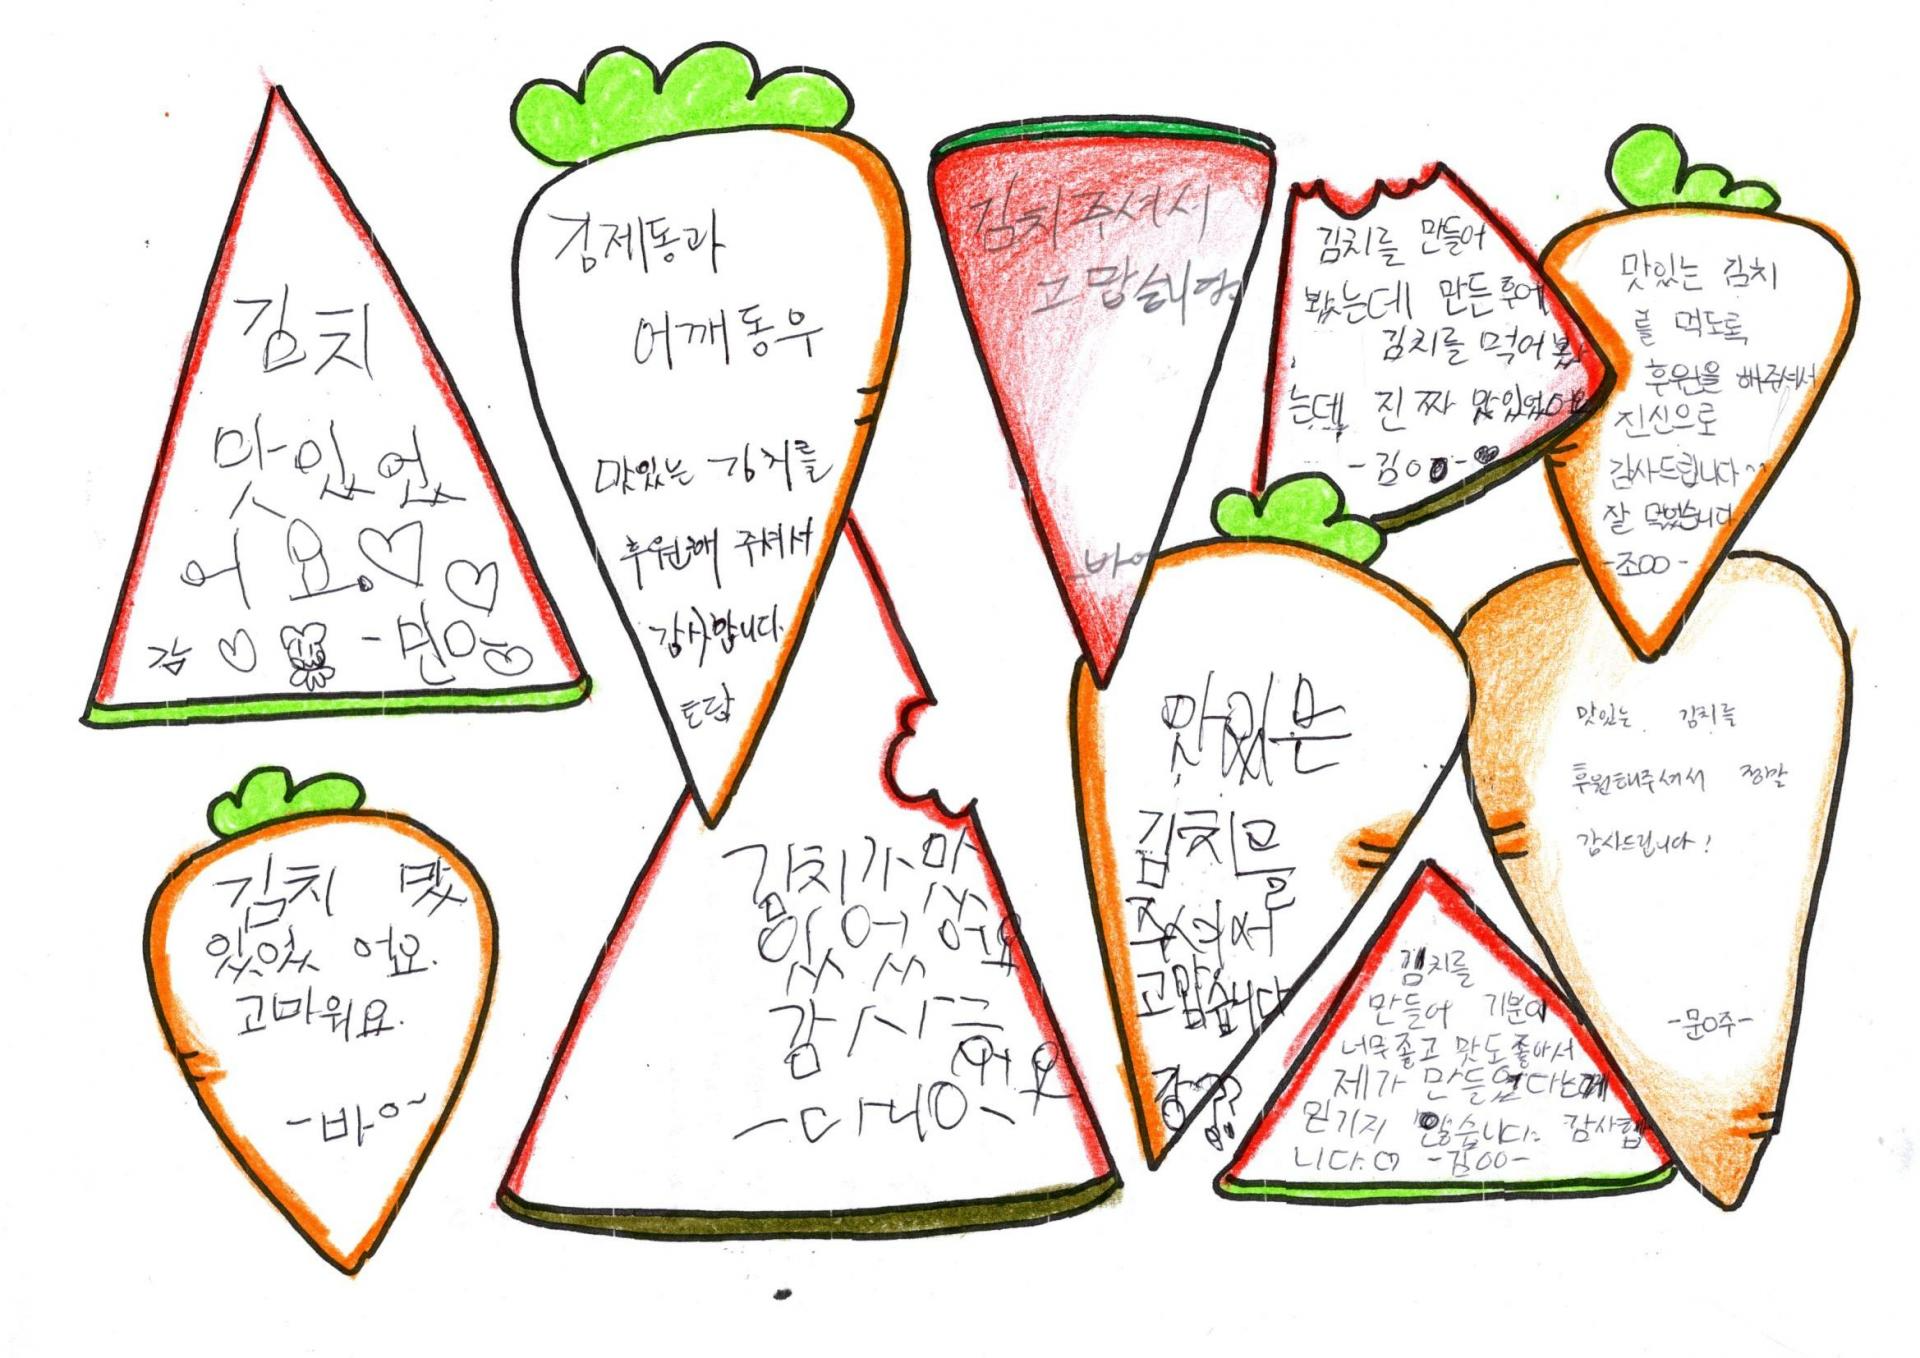 김치
맛있었
어요.♡
감 ♡ -민O
김제동과
어깨동무
맛있는 김치를
후원해 주셔서
감사합니다.
토담
김치주셔서
고맙습니다
김치를 만들어
봤는데 만든후에
김치를 먹어봤
는데 진짜 맛있었어요
-김OO-
맛있는 김치
를 먹도록
후원을 해주셔서
진심으로
감사드립니다^^
잘 먹었습니다
-조OO-
김치 맛
있었 어요.
고마워요.
-바O~
김치가 맛
있었 어요
감사
맛있는
김치를
주셔서
고맙습니다
강??
김치를
만들어 기분이
너무좋고 맛도좋아서
제가 만들었다는게
믿기지 않습니다. 감사합
니다.♡ -김OO-
맛있는 김치를
후원해주셔서 정말
감사드립니다!
-문O주-